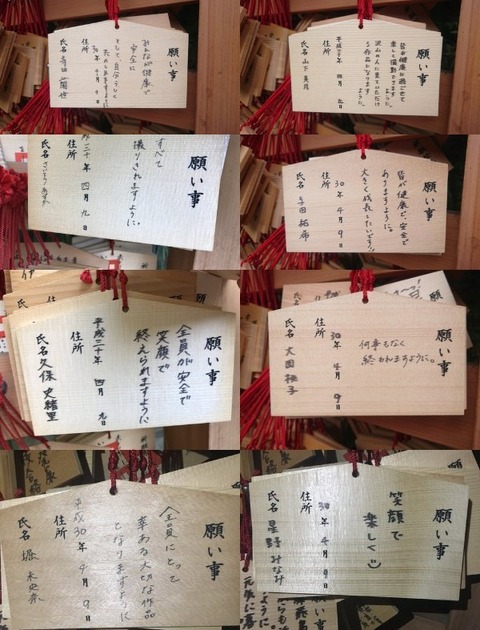 願い事
みんなが健康で
安全に
そして、自分らしく
たのしめますように
30年 4月 9日
住所
氏名 寺田 蘭世
願い事
皆が健康に過ごせて
楽しく撮影できます
ように。
沢山の人に見ていただけ
る作品になります
ように。
平成三十年 四月 九日
住所
氏名 山下 美月
願い事
すべて
撮りきれますように。
三十年 四月 九日
住所
氏名 さいとうあすか
願い事
皆が健康で、安全で
ありますように。
大きく成長したいです!!
30年 4月 9日
住所
氏名 与田 祐希
願い事
全員が安全で
笑顔で
終えられますように
平成三十年 四月 九日
住所
氏名 久保 史緒里
願い事
何事もなく
終われますように。
30年 4月 9日
住所
氏名 大園 桃子
願い事
全員にとって
幸ある大切な作品
となりますように
平成30年 4月 9日
住所
氏名 堀 未央奈
願い事
笑顔で
楽しく
30年 4月 9日
住所
氏名 星野 みなみ